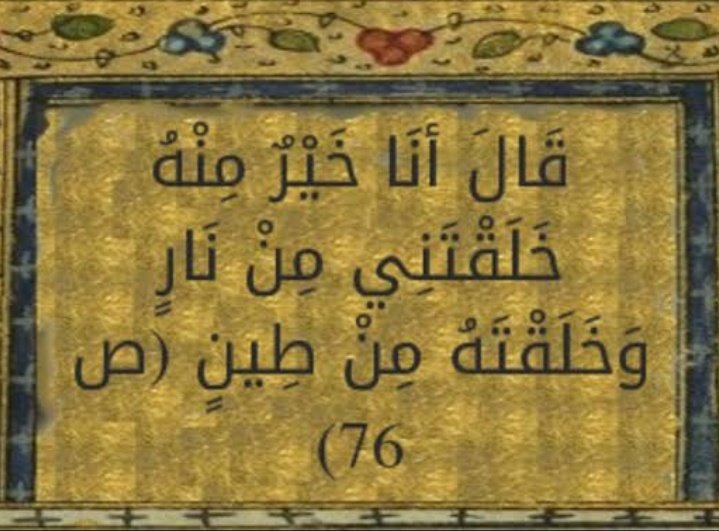 قَالَ أنَا خَيْرٌ مِنْهُ
خَلَقْتَنِي مِنْ نَارٍ
وَخَلَقْتَهُ مِنْ طِينٍ (ص
76)